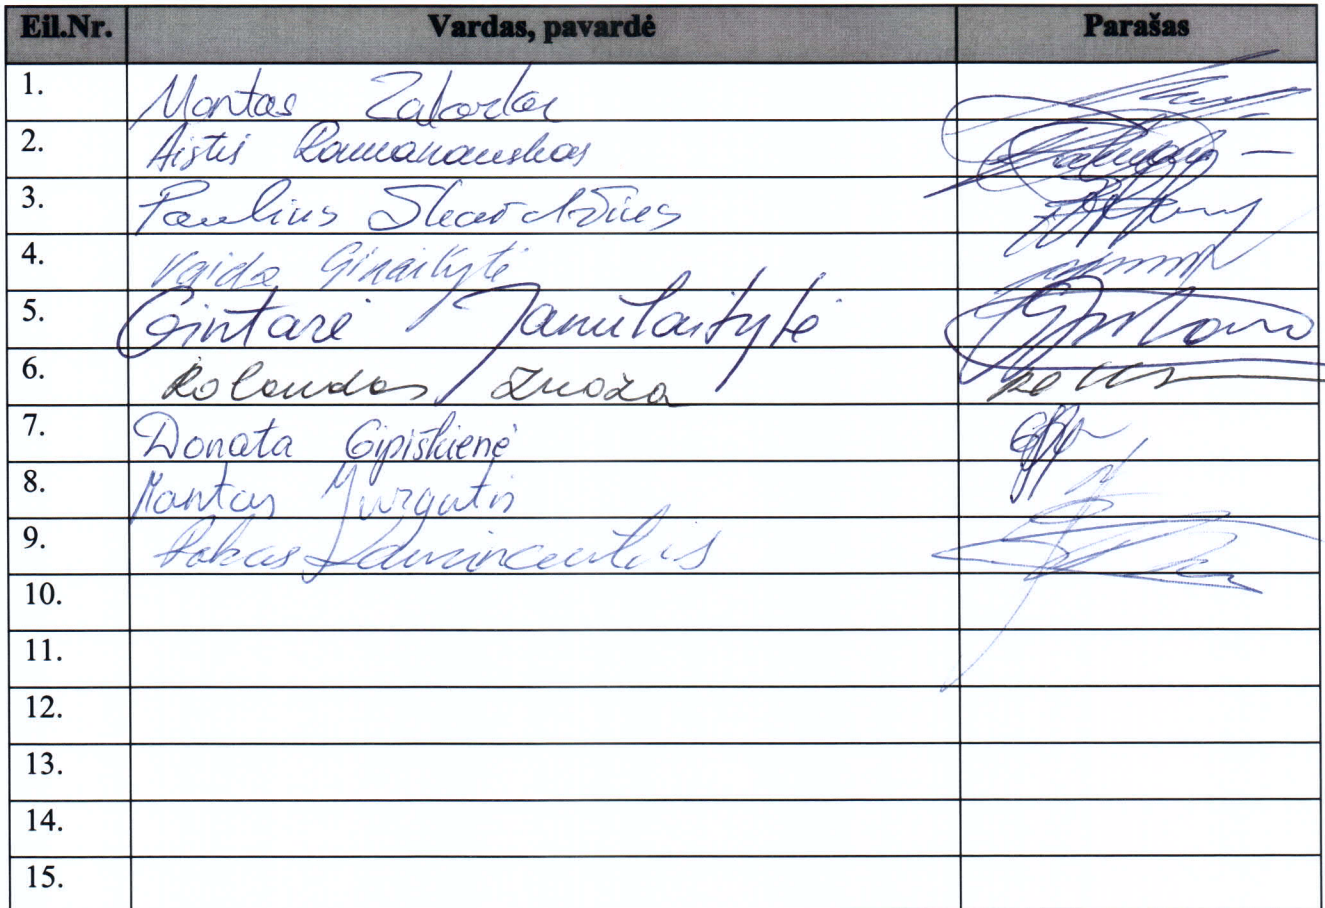 Eil.Nr. Vardas, pavardė Parašas
1. Mantas
2. Aistis Ramanauskas
3. Paulius Skardžius
4. Vaida Ginaitytė
5. Gintarė Janulaitytė
6. Rolandas Znoža
7. Donata Gipiškienė
8. Mantas Jurgutis
9. Rokas
10.
11.
12.
13.
14.
15.